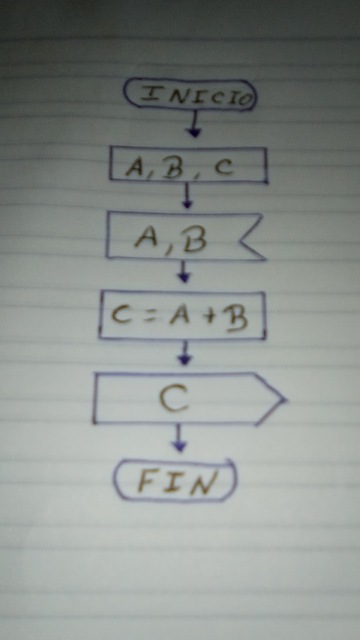 INICIO
A, B, C
A, B
C = A + B
C
FIN